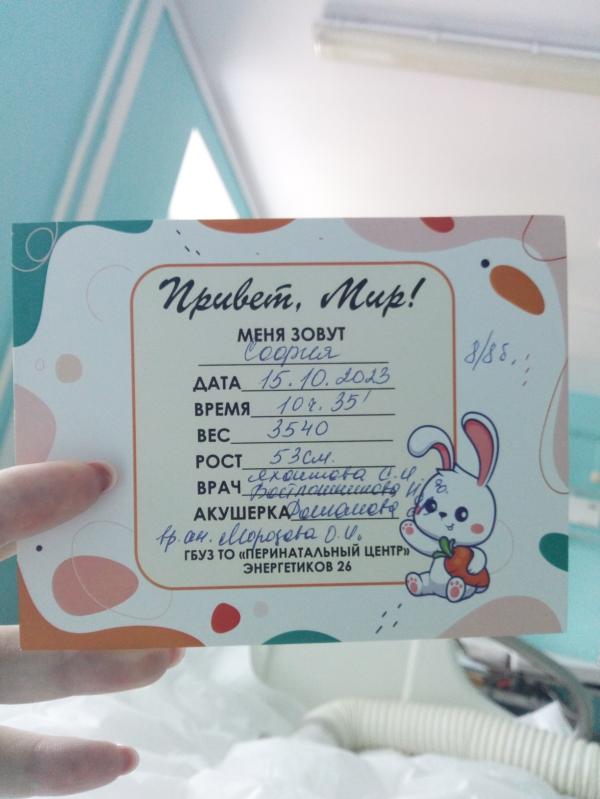 Привет, Мир!
МЕНЯ ЗОВУТ
София
8/8б.
ДАТА 15.10.2023
ВРЕМЯ 10ч. 35'
ВЕС 3540
РОСТ 53см.
ВРАЧ
АКУШЕРКА
вр. ан. Морозова О.И.
ГБУЗ ТО «ПЕРИНАТАЛЬНЫЙ ЦЕНТР»
ЭНЕРГЕТИКОВ 26